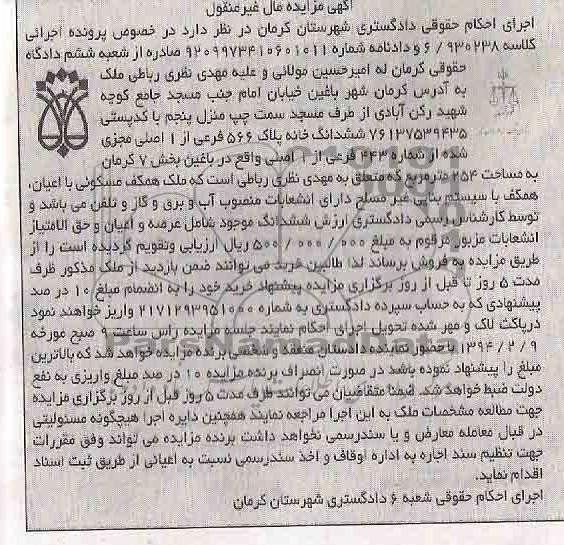 آگهی مزایده مال غیرمنقول
اجرای احکام حقوقی دادگستری شهرستان کرمان در نظر دارد در خصوص پرونده اجرائی
کلاسه ۹۳۰۲۳۸ / ۶ و دادنامه شماره ۹۲۰۹۹۷۳۴۱۰۶۰۱۰۱۱ صادره از شعبه ششم دادگاه
حقوقی کرمان له امیرحسین مولائی و علیه مهدی نظری رباطی ملک
به آدرس کرمان شهر باغین خیابان امام جنب مسجد جامع کوچه
شهید رکن آبادی از طرف مسجد سمت چپ منزل پنجم با کدپستی
۷۶۱۳۷۵۳۹۴۳۵ ششدانگ خانه پلاک ۵۶۶ فرعی از ۱ اصلی مجزی
شده از شماره ۴۴۳ فرعی از ۱ اصلی واقع در باغین بخش ۷ کرمان
به مساحت ۲۵۴ مترمربع که متعلق به مهدی نظری رباطی است که ملک همکف مسکونی با اعیان،
همکف با سیستم بنایی غیر مسلح دارای انشعابات منصوب آب و برق و گاز و تلفن می باشد و
توسط کارشناس رسمی دادگستری ارزش ششدانگ موجود شامل عرصه و اعیان و حق الامتیاز
انشعابات مزبور مرقوم به مبلغ ۰۰۰ / ۰۰۰ / ۵۰۰ ریال ارزیابی وتقویم گردیده است را از
طریق مزایده به فروش برساند لذا طالبین خرید می توانند ضمن بازدید از ملک مذکور ظرف
مدت ۵ روز تا قبل از روز برگزاری مزایده پیشنهاد خرید خود را به انضمام مبلغ ۱۰ در صد
پیشنهادی که به حساب سپرده دادگستری به شماره ۲۱۷۱۲۹۳۹۵۱۰۰۰ واریز خواهند نمود
درپاکت لاک و مهر شده تحویل اجرای احکام نمایند جلسه مزایده راس ساعت ۹ صبح مورخه
۹ / ۲ / ۱۳۹۴ باحضور نماینده دادستان منعقد و شخصی برنده مزایده خواهد شد که بالاترین
مبلغ را پیشنهاد نموده باشد در صورت انصراف برنده مزایده ۱۰ در صد مبلغ واریزی به نفع
دولت ضبط خواهد شد. ضمنا متقاضیان می توانند ظرف مدت ۵ روز قبل از روز برگزاری مزایده
جهت مطالعه مشخصات ملک به این اجرا مراجعه نمایند همچنین دایره اجرا هیچگونه مسئولیتی
در قبال معامله معارض و یا سندرسمی نخواهد داشت برنده مزایده می تواند وفق مقررات
جهت تنظیم سند اجاره به اداره اوقاف و اخذ سندرسمی نسبت به اعیانی از طریق ثبت اسناد
اقدام نماید.
اجرای احکام حقوقی شعبه ۶ دادگستری شهرستان کرمان
ParsNamadData